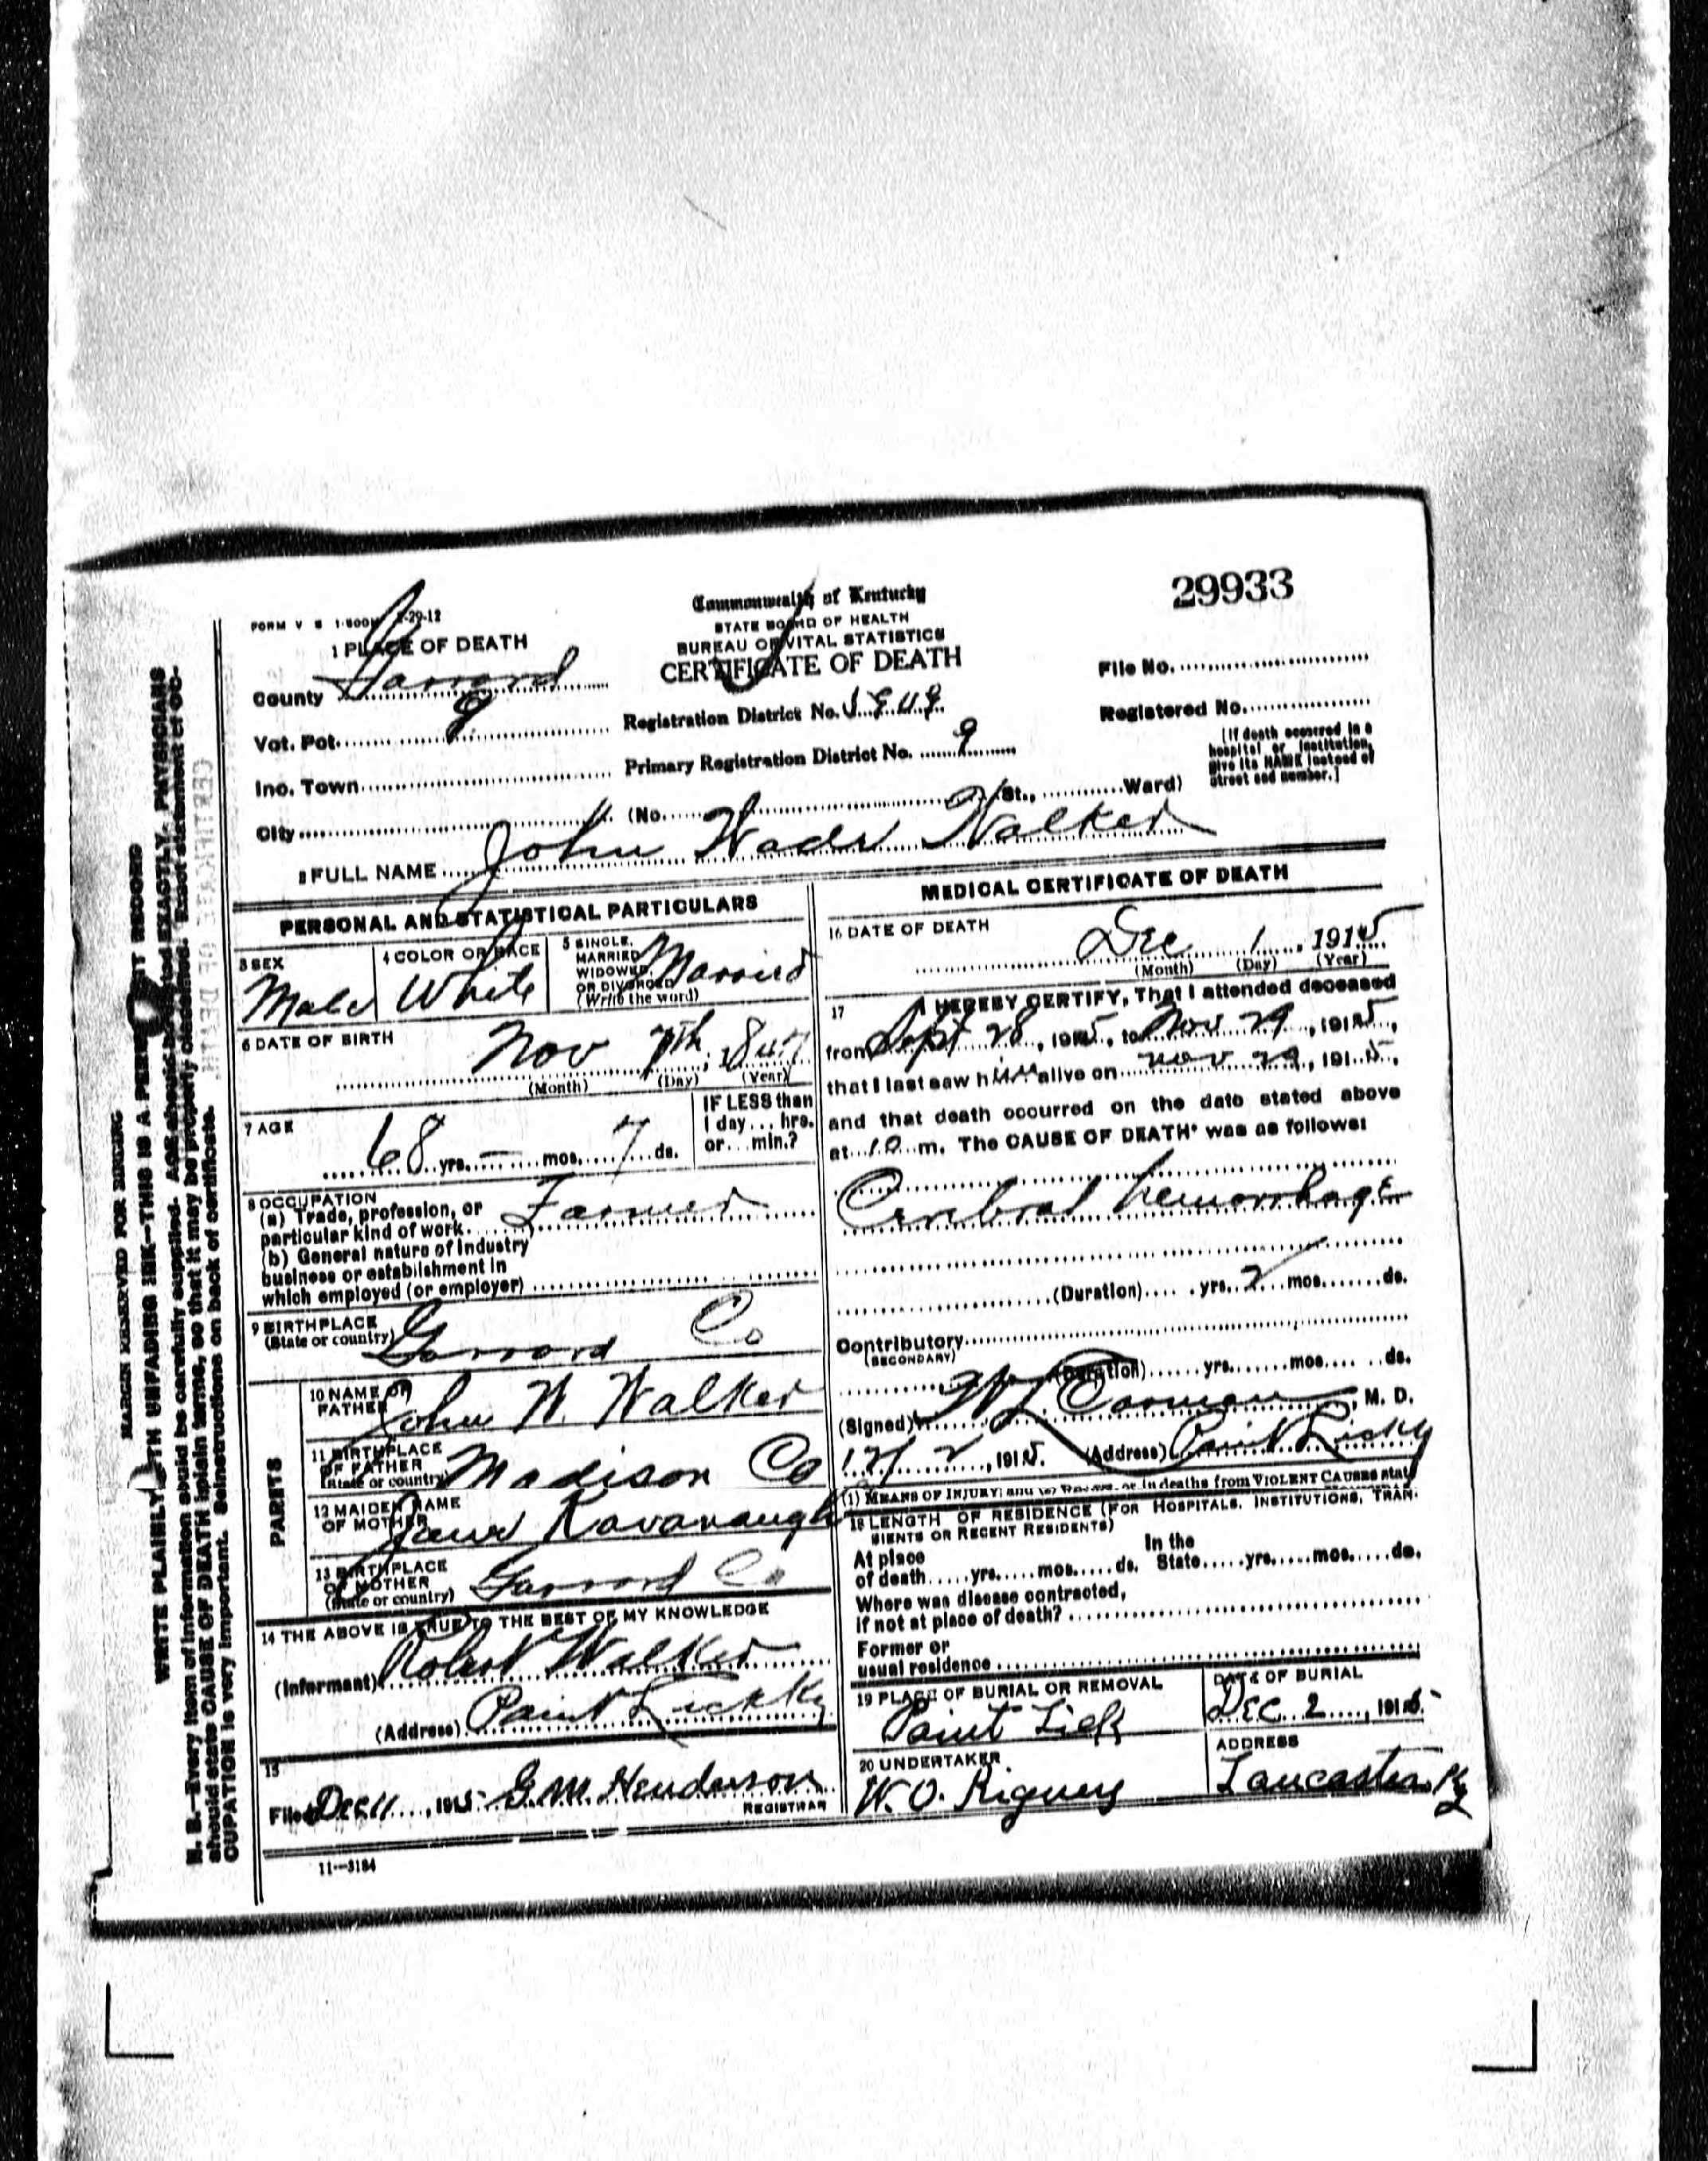 29933
FORM V S 1-500M -29-12
Commonwealth of Kentucky
STATE BOARD OF HEALTH
BUREAU OF VITAL STATISTICS
CERTIFICATE OF DEATH
1 PLACE OF DEATH
County Garrard
Vot. Pct. 9
Inc. Town
City
Registration District No.
Primary Registration District No. 9
(No. St., Ward)
File No.
Registered No.
[If death occurred in a
hospital or institution,
give its NAME instead of
street and number.]
2 FULL NAME John Wade Walker
PERSONAL AND STATISTICAL PARTICULARS
3 SEX
Male
4 COLOR OR RACE
White
5 SINGLE,
MARRIED
WIDOWED,
OR DIVORCED
(Write the word)
Married
6 DATE OF BIRTH
Nov 7th, 1847
(Month) (Day) (Year)
7 AGE
68 yrs. — mos. 7 ds.
IF LESS than
1 day... hrs.
or... min.?
8 OCCUPATION
(a) Trade, profession, or
particular kind of work Farmer
(b) General nature of industry
business or establishment in
which employed (or employer)
9 BIRTHPLACE
(State or country) Garrard Co
PARENTS
10 NAME OF
FATHER John W. Walker
11 BIRTHPLACE
OF FATHER
(State or country) Madison Co
12 MAIDEN NAME
OF MOTHER Jane Kavanaugh
13 BIRTHPLACE
OF MOTHER
(State or country) Garrard Co
14 THE ABOVE IS TRUE TO THE BEST OF MY KNOWLEDGE
(Informant) Robert Walker
(Address) Paint Lick Ky
15
Filed Dec 11, 1915 G. M. Henderson
REGISTRAR
11—3184
MEDICAL CERTIFICATE OF DEATH
16 DATE OF DEATH
Dec 1, 1915
(Month) (Day) (Year)
17 I HEREBY CERTIFY, That I attended deceased
from Sept 28, 1915, to Nov 29, 1915,
that I last saw him alive on Nov 29, 1915,
and that death occurred on the date stated above
at 10 m. The CAUSE OF DEATH* was as follows:
Cerebral hemorrhage
(Duration) yrs. 2 mos. ds.
Contributory
(SECONDARY)
(Duration) yrs. mos. ds.
(Signed) M. D.
12/2, 1915. (Address) Paint Lick Ky
(1) MEANS OF INJURY; in deaths from VIOLENT CAUSES state
18 LENGTH OF RESIDENCE (FOR HOSPITALS, INSTITUTIONS, TRAN-
SIENTS OR RECENT RESIDENTS)
At place In the
of death yrs. mos. ds. State yrs. mos. ds.
Where was disease contracted,
if not at place of death?
Former or
usual residence
19 PLACE OF BURIAL OR REMOVAL
Paint Lick
DATE OF BURIAL
DEC 2, 1915
20 UNDERTAKER
W. O. Rigney
ADDRESS
Lancaster Ky
MARGIN RESERVED FOR BINDING
WRITE PLAINLY WITH UNFADING INK—THIS IS A PERMANENT RECORD
N. B.—Every item of information should be carefully supplied. AGE should be stated EXACTLY. PHYSICIANS
should state CAUSE OF DEATH in plain terms, so that it may be properly classified. Exact statement of OC-
CUPATION is very important. See instructions on back of certificate.